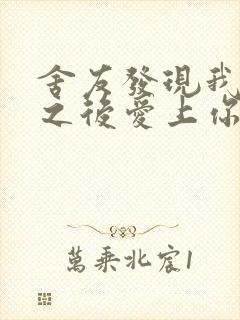 舍友發現我
之後愛上你
萬乘北宸1